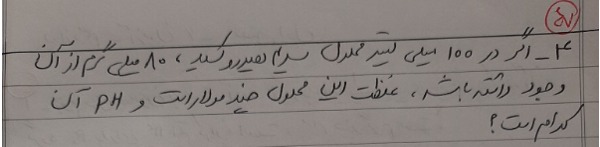 ۵۷
۴_ اگر در ۱۰۰ میلی لیتر محلول سدیم هیدروکسید، ۸۰ میلی گرم از آن
وجود داشته باشد، غلظت این محلول چند مولار است و PH آن
کدام است؟